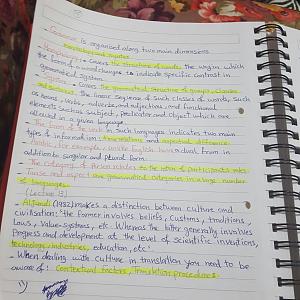 - Grammar is organised along two main dimensions
morphology and syntax
- Morphology: Covers the structure of words the way in which
the form of a word changes to indicate specific contrast in
grammatical system.
- Syntax: Covers the grammatical structure of groups, clauses
and sentences: the linear sequence of such classes of words, such
as nouns, verbs, adverbs and adjectives, and functional
elements such as subject, predicator and Object which are
allowed in a given language.
- The form of the verb in such languages indicates two main
types of information: time relations and aspectual differences
- Arabic, for example, unlike English has a dual form in
addition to singular and plural form:
- The category of Person relates to the notion of participants roles
- Tense and aspect are grammatical categories in large number
of languages.
(Lecture 13)
- Aljundi (1982) makes a distinction between culture and
civilisation: the former involves beliefs, customs, traditions,
Laws, Value-systems, etc. Whereas the latter generally involves
Progress and development at the level of scientific inventions,
technology, industries, education, etc.
- When dealing with culture in translation you need to be
aware of: Contextual factors, Translation procedures